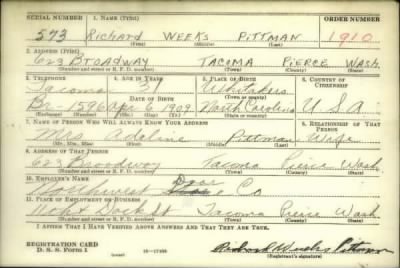 SERIAL NUMBER 1. NAME (Print) ORDER NUMBER
573 RICHARD WEEKS PITTMAN 1910
(First) (Middle) (Last)
2. ADDRESS (Print)
623 BROADWAY TACOMA PIERCE WASH.
(Number and street or R. F. D. number) (Town) (County) (State)
3. TELEPHONE 4. AGE IN YEARS 5. PLACE OF BIRTH 6. COUNTRY OF CITIZENSHIP
Tacoma 31 Whitakers
DATE OF BIRTH (Town or county)
Br-1596 Apr. 6 1909 North Carolina U S A
(Mo.) (Day) (Yr.) (State or country)
7. NAME OF PERSON WHO WILL ALWAYS KNOW YOUR ADDRESS 8. RELATIONSHIP OF THAT PERSON
Mrs Adaline Pittman Wife
(Mr., Mrs., Miss) (First) (Middle) (Last)
9. ADDRESS OF THAT PERSON
623 Broadway Tacoma Pierce Wash
(Number and street or R. F. D. number) (Town) (County) (State)
10. EMPLOYER'S NAME
Northwest Door Co
11. PLACE OF EMPLOYMENT OR BUSINESS
Dock St Tacoma Pierce Wash
(Number and street or R. F. D. number) (Town) (County) (State)
I AFFIRM THAT I HAVE VERIFIED ABOVE ANSWERS AND THAT THEY ARE TRUE.
REGISTRATION CARD
D. S. S. Form 1 (over) Richard Weeks Pittman
(Registrant's signature)